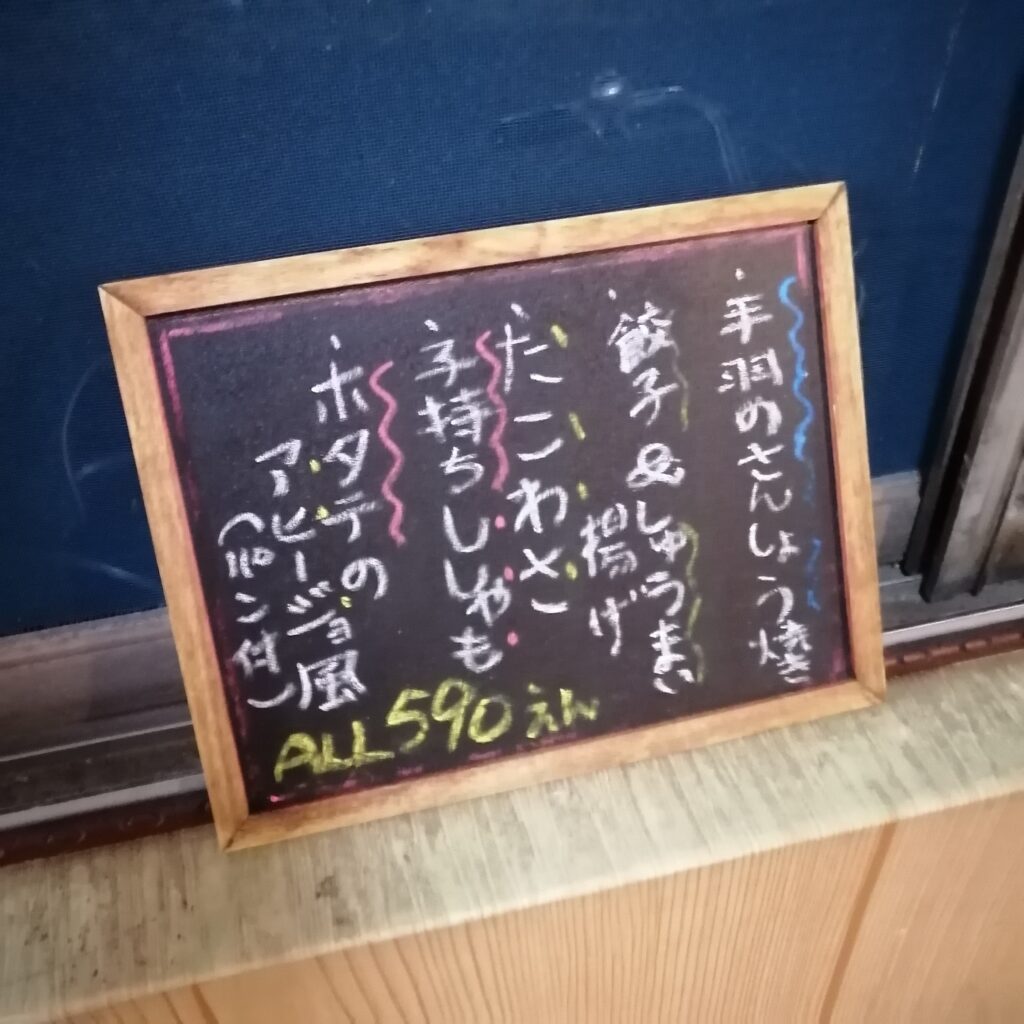 ・手羽のさんしょう焼き
・餃子&しゅうまい
揚げ
・たこわさ
・子持ちししゃも
・ホタテの
アヒージョ風
(パン付)
ALL590えん